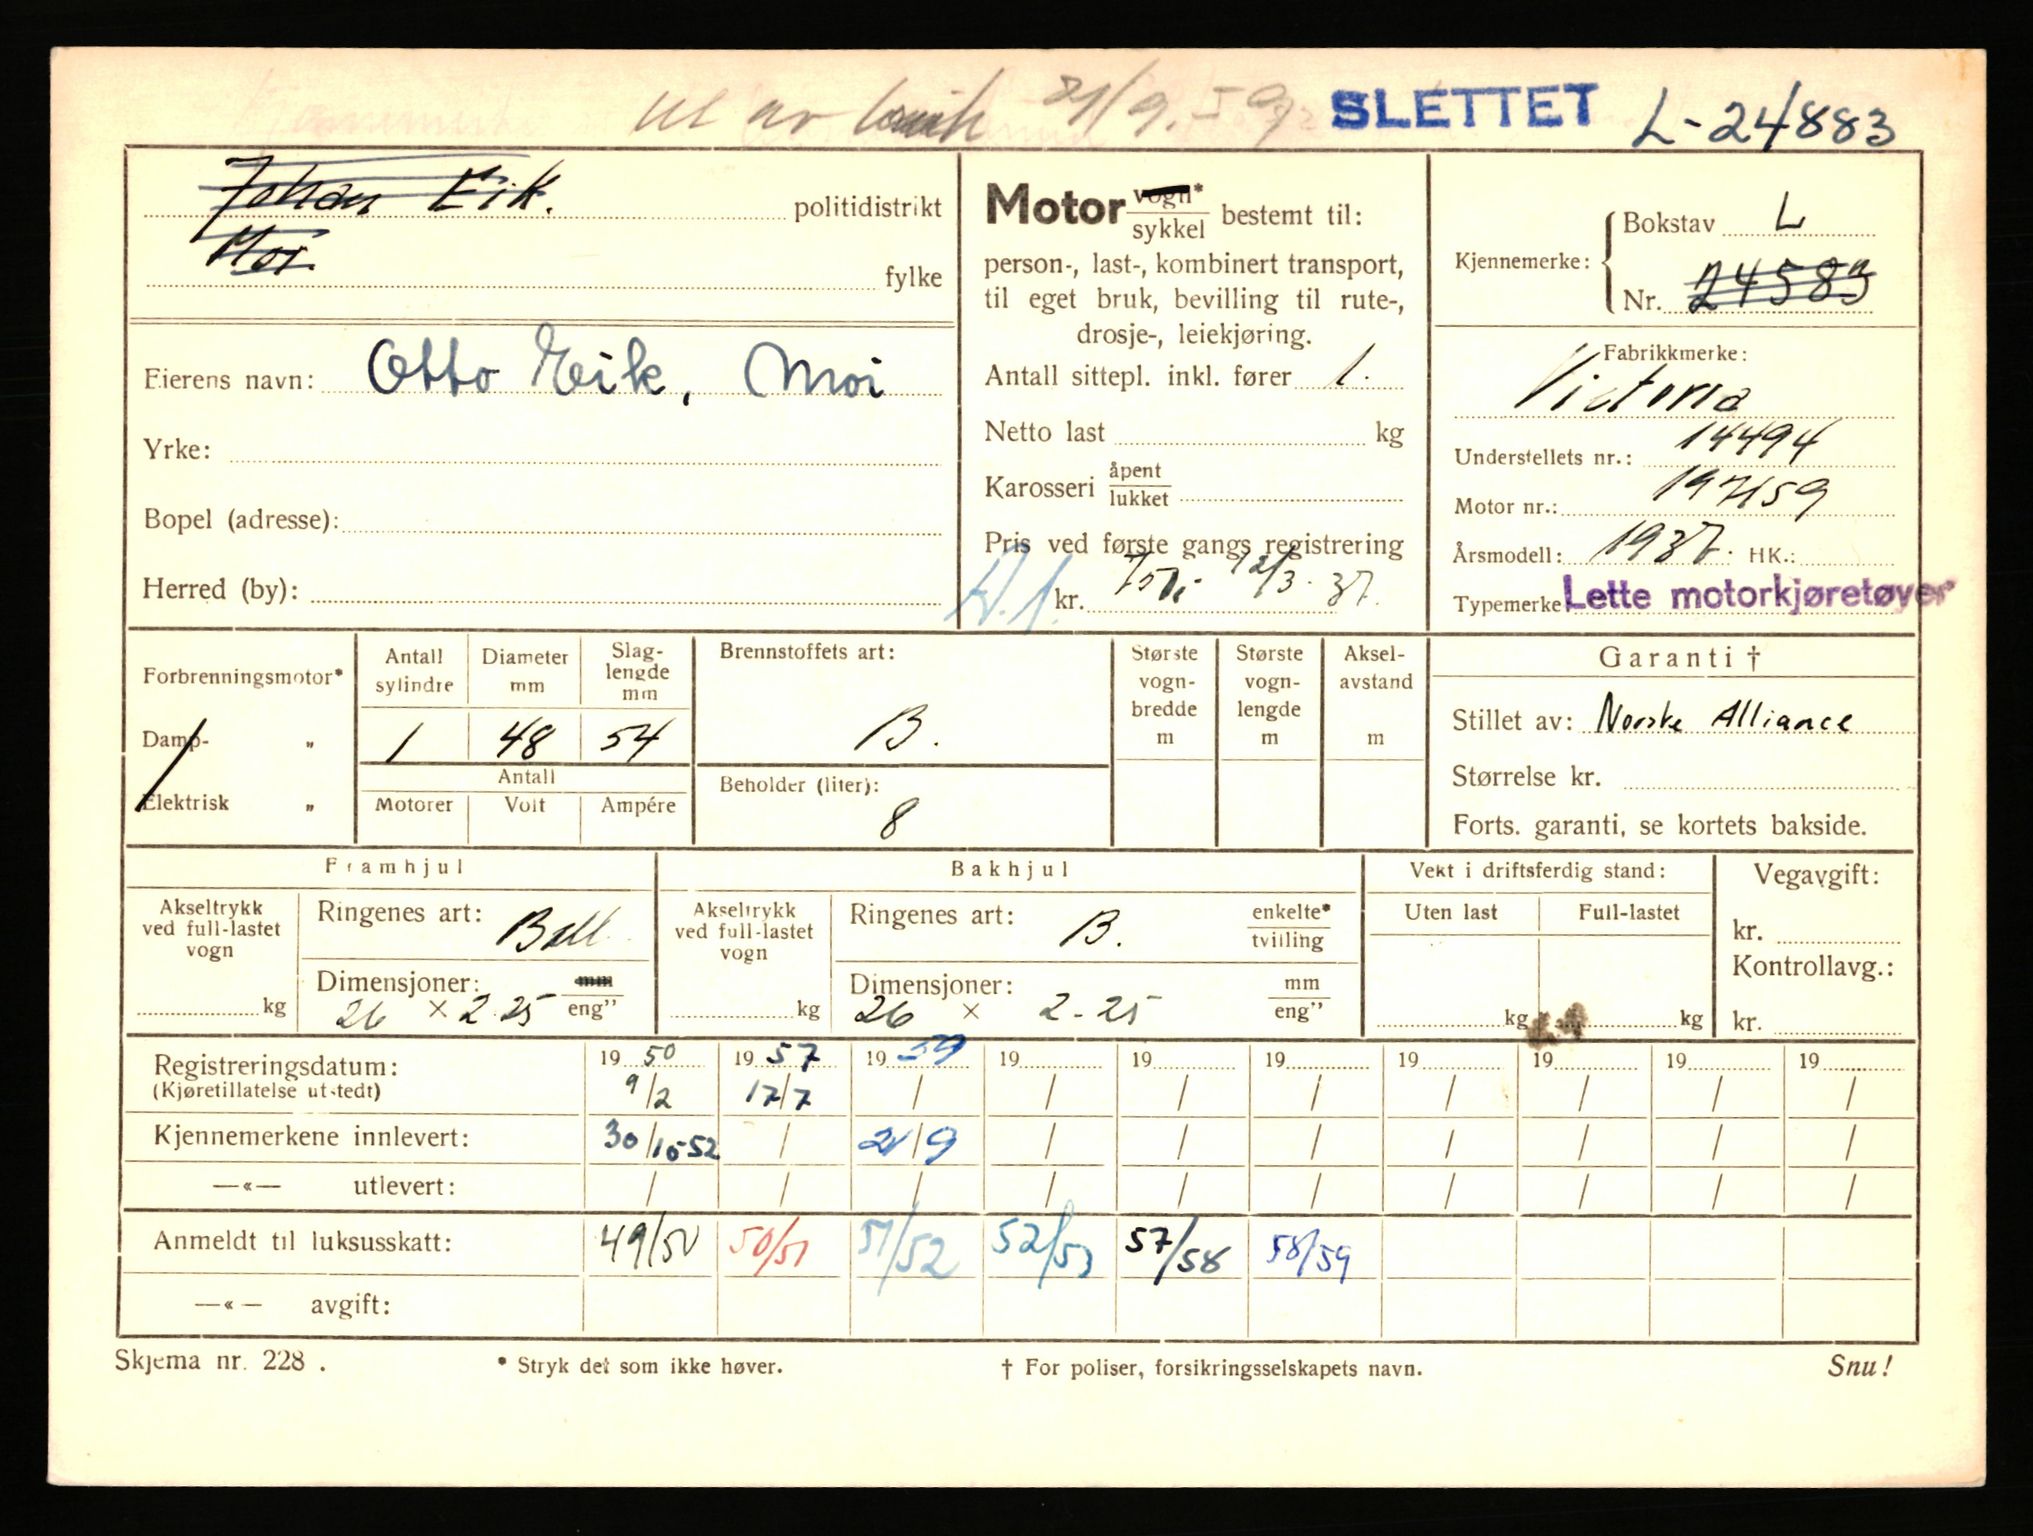 ut av bruk 21/9.59 SLETTET L-24883
Johan Eik. politidistrikt
Moi. fylke
Eierens navn: Otto Eik, Moi
Yrke:
Bopel (adresse):
Herred (by):
Motor vogn* sykkel bestemt til:
person-, last-, kombinert transport,
til eget bruk, bevilling til rute-,
drosje-, leiekjøring.
Antall sittepl. inkl. fører 1.
Netto last kg
Karosseri åpent lukket
Pris ved første gangs registrering
kr. 12/3. 37.
Kjennemerke: Bokstav L
Nr. 24583
Fabrikkmerke:
Victoria
Understellets nr.: 14494
Motor nr.: 197159
Årsmodell: 1937. HK.:
Typemerke Lette motorkjøretøyer
Forbrenningsmotor*
Damp- "
Elektrisk "
Antall sylindre Diameter mm Slag- lengde mm
1 48 54
Antall
Motorer Volt Ampére
Brennstoffets art:
B.
Beholder (liter):
8
Største vogn- bredde m
Største vogn- lengde m
Aksel- avstand m
Garanti †
Stillet av: Norske Alliance
Størrelse kr.
Forts. garanti, se kortets bakside.
Framhjul
Akseltrykk ved full-lastet vogn kg
Ringenes art: Ball.
Dimensjoner: mm eng"
26 × 2.25
Bakhjul
Akseltrykk ved full-lastet vogn kg
Ringenes art: B. enkelte* tvilling
Dimensjoner: mm eng"
26 × 2-25
Vekt i driftsferdig stand:
Uten last Full-lastet
kg kg
Vegavgift:
kr.
Kontrollavg.:
kr.
Registreringsdatum: 19 50 19 57 19 59 19 19 19 19 19 19 19
(Kjøretillatelse utstedt) 9/2 17/7 / / / / / / / /
Kjennemerkene innlevert: 30/10-52 / 21/9 / / / / / / /
—«— utlevert: / / / / / / / / / /
Anmeldt til luksusskatt: 49/50 50/51 51/52 52/53 57/58 58/59
—«— avgift:
Skjema nr. 228 . * Stryk det som ikke høver. † For poliser, forsikringsselskapets navn. Snu!